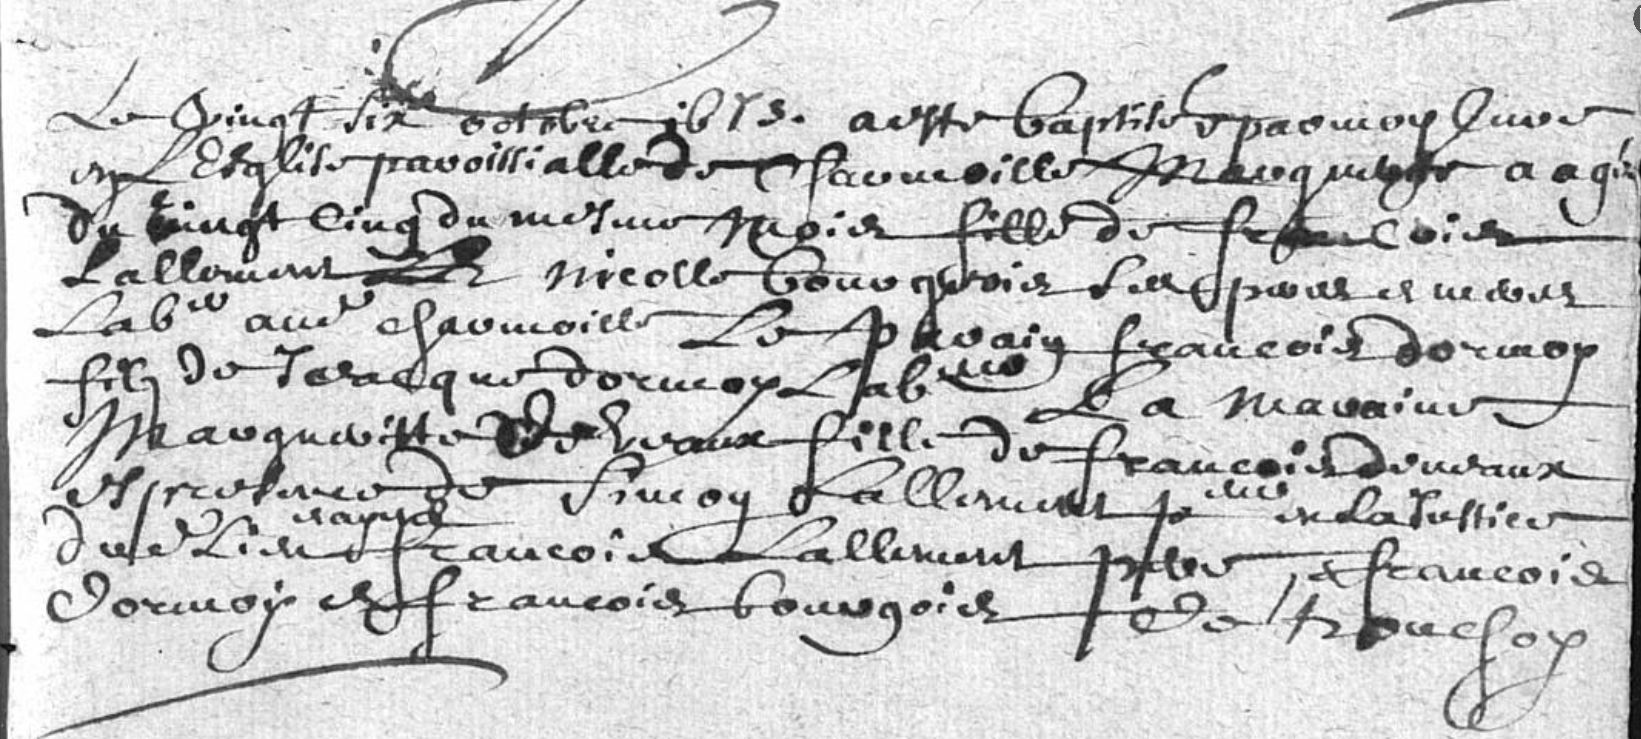 Le vingt six octobre 1675. a este baptisée par moy Curé
en L'Esglise paroissialle de Charmoille Marguerite aagée
du vingt cinq du mesme mois fille de francois
Lallement Nicolle bourgeois ses peres et meres
Lab^rs aud^t charmoille Le parain francois dormoy
filz de Jacque dormoy Lab^reur La maraine
Margueritte deveaux fille de francois deveaux
et presence de Simon Lallement en La Justice
dud^t Lieu francois Lallement p^bre, et francois
Dormoy et francois bourgois de tronchoy